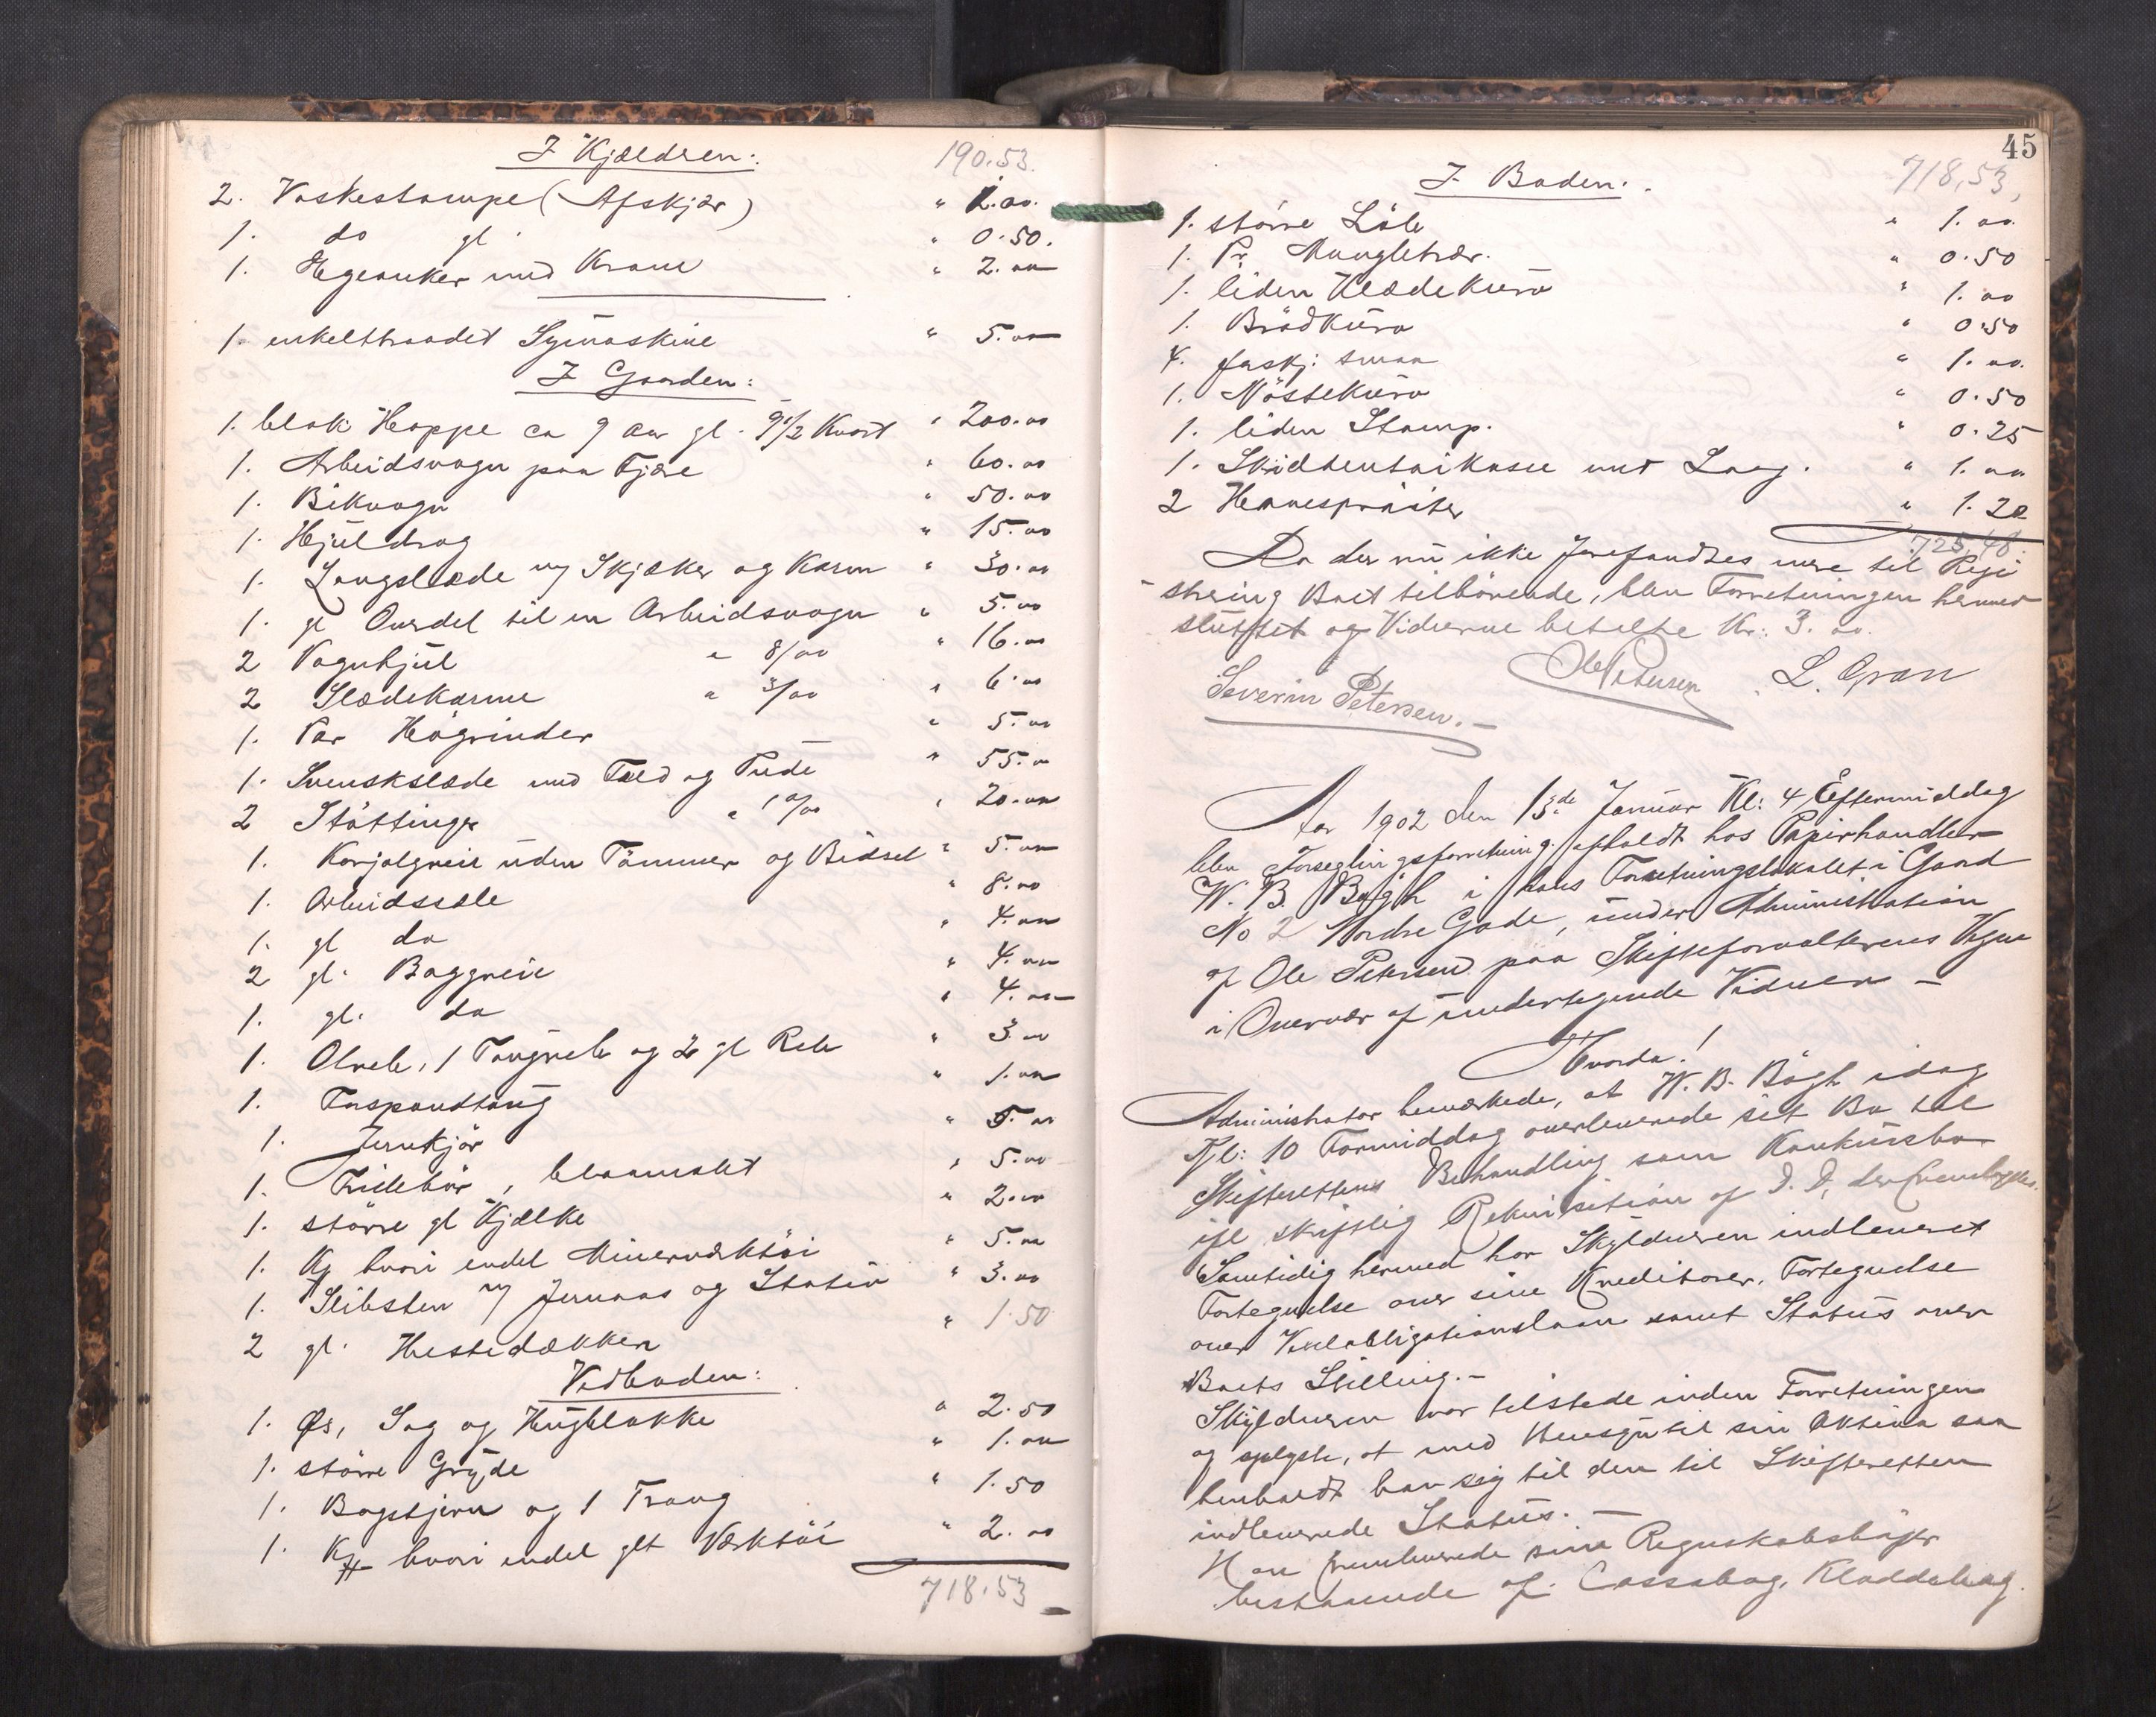 I Kjælderen: 190.53.
2. Vaskestampe (Afskjær) " 1.00.
1. do gl. " 0.50.
1. Ølgeanker med Krane " 2.00
1. enkelttraadet Symaskine " 5.00
I Gaarden:
1. blak Hoppe ca 9 Aar gl. 9 1/2 Kvart " 200.00
1. Arbeidsvogn paa Fjære " 60.00
1. Bikvogn " 50.00
1. Hjuldrag " 15.00
1. Langslæde m/ Skjæker og Karm " 30.00
1. gl Overdel til en Arbeidsvogn " 5.00
2 Vognhjul a 8/00 " 16.00
2 Slædekarme a 3/00 " 6.00
1. Par Høgrinder " 5.00
1. Svenskslæde med Fæld og Pude " 55.00
2 Støttinger a 10/00 " 20.00
1. Karjolgreie uden Tømmer og Bidsel " 5.00
1. Arbeidssæle " 8.00
1. gl do " 4.00
2 gl. Baggreie " 4.00
1. gl. do " 4.00
1. Olreb, 1 Tangreb og 2 gl Reb " 3.00
1. Forspandtøug " 1.00
1. Jernkjør " 5.00
1. Trillebør, blaamalet " 5.00
1. større gl Kjælke " 2.00
1. Kg hvori endel Minerværktøi " 5.00
1. Slibsten m/ Jernaas og Stativ " 3.00
2 gl. Hestedækken " 1.50
Vedboden:
1. Øs, Sag og Hugblokke " 2.50
1. større Gryde " 1.00
1. Bagstjern og 1 Traug " 1.50
1. Kg hvori endel glt Værktøi " 2.00
718.53
45
I Boden: 718,53,
1. større Løb " 1.00
1. Pr. Mangletrær. " 0.50
1. liden Klædekurv " 1.00
1. Brødkurv " 0.50
4. Jaskj: smaa " 1.00.
1. Nøstekurv " 0.50
1. liden Stamp. " 0.25
1. Skidtentøikasse med Laag. " 1.00
2 Hønespraiter " 1.20
725,48
Da der nu ikke forefandtes mere til Regi
string Boet tilhørende, blev Forretningen hermed
sluttet og Vidnerne betalte Kr: 3.00.
Severin Petersen. Ole Petersen L. Gran
Aar 1902 den 13de Januar Kl: 4 Eftermiddag
blev Forseglingsforretning afholdt hos Papirhandler
W. B. Bøgh i hans Forretningslokale i Gaard
No 2 Nordre Gade, under Administration
af Ole Petersen paa Skifteforvalterens Vegne
i Overvær af undertegnede Vidner –
Hvorda!
Administrator bemærkede, at W. B. Bøgh idag
Kl: 10 Formiddag overleverede sit Bo til
Skifterettens Behandling som Konkursbo
ifl skriftlig Rekvisition af D. D, der fremlægges.
Samtidig hermed har Skyldneren indleveret
Fortegnelse over sine Kreditorer, Fortegnelse
over Vexelobligationslaan samt Status over
Boets Stilling. –
Skyldneren var tilstede under Forretningen
og oplyste, at med Hensyn til sin Aktiva saa
henholdt han sig til den til Skifteretten
indleverede Status. –
Han fremleverede sine Regnskabsbøger
bestaaende af: Cassabog, Kladdebog.